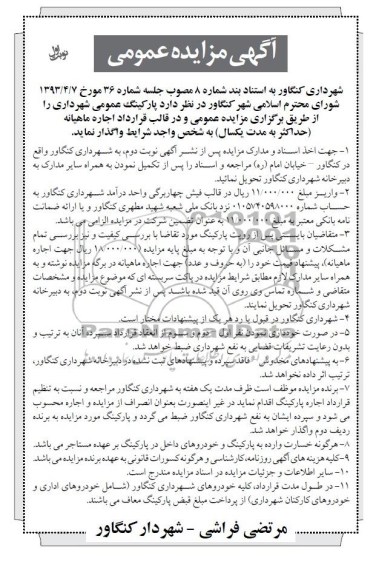 آگهی مزایده عمومی
نوبت اول
شهرداری کنگاور به استناد بند شماره ۸ مصوب جلسه شماره ۳۶ مورخ ۱۳۹۳/۴/۷
شورای محترم اسلامی شهر کنگاور در نظر دارد پارکینگ عمومی شهرداری را
از طریق برگزاری مزایده عمومی و در قالب قرارداد اجاره ماهیانه
(حداکثر به مدت یکسال) به شخص واجد شرایط واگذار نماید.
۱- جهت اخذ اسناد و مدارک مزایده پس از نشر آگهی نوبت دوم، به شهرداری کنگاور واقع
در کنگاور – خیابان امام (ره) مراجعه و اسناد را پس از تکمیل نمودن به همراه سایر مدارک به
دبیرخانه شهرداری کنگاور تحویل نمائید.
۲- واریز مبلغ ۱۱/۰۰۰/۰۰۰ ریال در قالب فیش چهاربرگی واحد درآمد شهرداری کنگاور به
حساب شماره ۰۱۰۵۷۴۰۵۹۸۰۰۰ نزد بانک ملی شعبه شهید مطهری کنگاور و یا ارائه ضمانت
نامه بانکی معتبر به مبلغ ۱۱/۰۰۰/۰۰۰ به عنوان تضمین شرکت در مزایده الزامی می باشد.
۳- متقاضیان بایستی پس از رویت پارکینگ مورد تقاضا با بررسی کیفیت و نیز بررسی تمام
مشکلات و مسائل جانبی آن و با توجه به مبلغ پایه مزایده (۱۸/۰۰۰/۰۰۰ ریال جهت اجاره
ماهیانه)، پیشنهاد قیمت خود را (به حروف و عدد) جهت اجاره ماهیانه در برگه مزایده نوشته و به
همراه سایر مدارک لازم مطابق شرایط مزایده در پاکت سربسته ای که موضوع مزایده و مشخصات
متقاضی و شماره تماس وی روی آن قید شده باشد پس از نشر آگهی نوبت دوم، به دبیرخانه
شهرداری کنگاور تحویل نمایند.
۴- شهرداری کنگاور در قبول یا رد هر یک از پیشنهادات مختار است.
۵- در صورت خودداری نمودن نفر اول، دوم و سوم از انعقاد قرارداد سپرده آنان به ترتیب و
بدون رعایت تشریفات قضایی به نفع شهرداری ضبط خواهد شد.
۶- به پیشنهادهای مخدوش، فاقد سپرده و پیشنهادهای ثبت نشده در دبیرخانه شهرداری کنگاور،
ترتیب اثر داده نخواهد شد.
۷- برنده مزایده موظف است ظرف مدت یک هفته به شهرداری کنگاور مراجعه و نسبت به تنظیم
قرارداد اجاره پارکینگ اقدام نماید در غیر اینصورت بعنوان انصراف از مزایده و اجاره محسوب
می شود و سپرده ایشان به نفع شهرداری کنگاور ضبط می گردد و پارکینگ مورد مزایده به برنده
ردیف دوم واگذار خواهد شد.
۸- هرگونه خسارت وارده به پارکینگ و خودروهای داخل در پارکینگ بر عهده مستاجر می باشد.
۹- کلیه هزینه های آگهی روزنامه، کارشناسی و هرگونه کسورات قانونی به عهده برنده مزایده می باشد.
۱۰- سایر اطلاعات و جزئیات مزایده در اسناد مزایده مندرج است.
۱۱- در طول مدت قرارداد، کلیه خودروهای شهرداری کنگاور (شامل خودروهای اداری و
خودروهای کارکنان شهرداری) از پرداخت مبلغ قبض پارکینگ معاف می باشند.
مرتضی فراشی - شهردار کنگاور